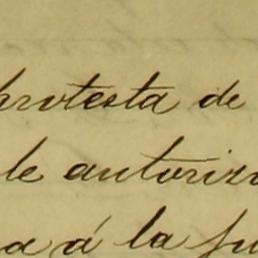 protesta de
le autoriz
a á la ju